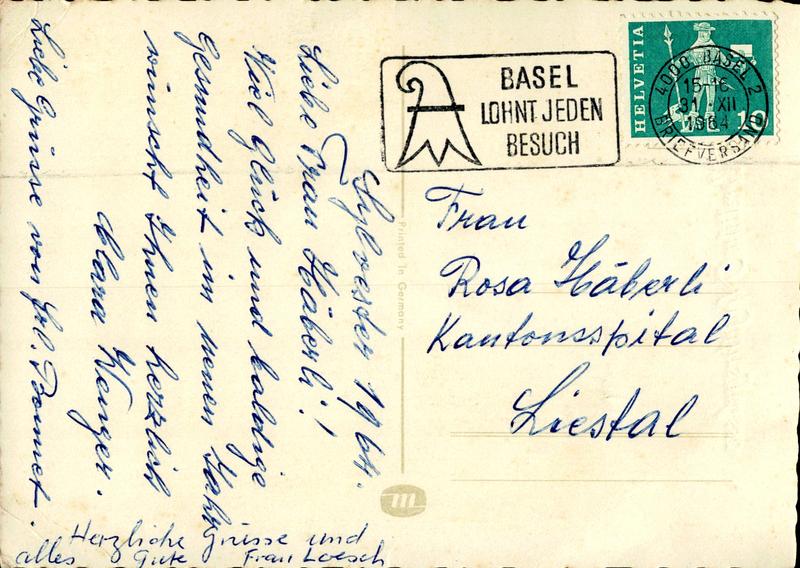 Sylvester 1964.
Liebe Frau Häberli!
Viel Glück und baldige
Gesundheit im neuen Jahr
wünscht Ihnen herzlich
Clara Wenger.
Liebe Grüsse von Frl. Bonnet.
Herzliche Grüsse und
alles Gute Frau Loesch
Printed in Germany
m
BASEL
LOHNT JEDEN
BESUCH
HELVETIA
10
4000 BASEL 2
15-16
31 XII
1964
BRIEFVERSAND
Frau
Rosa Häberli
Kantonsspital
Liestal